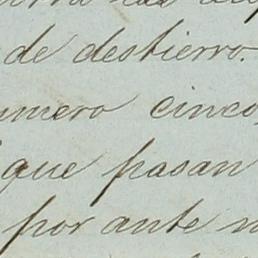 de destierro.
numero cinco
que pasan
por ante